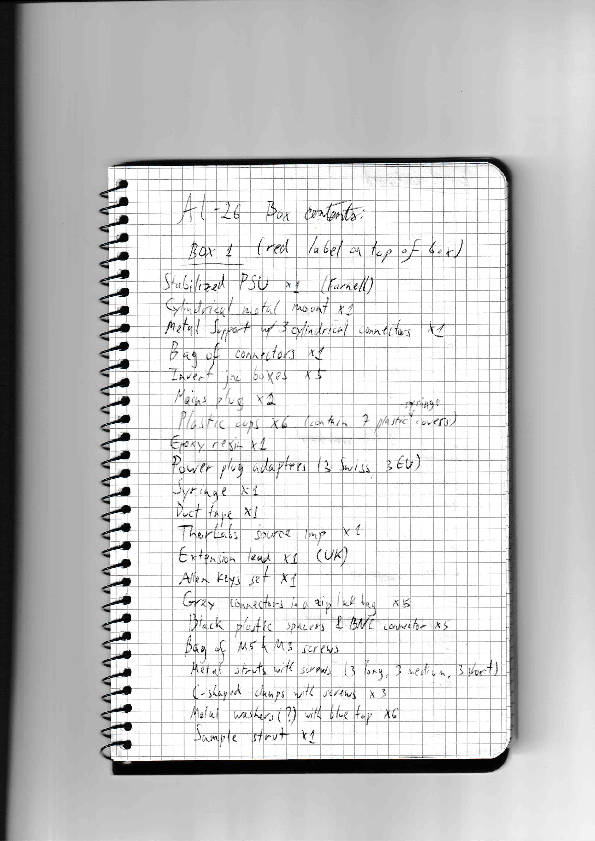 Al-26 Box contents:
BOX 1 (red label on top of box)
Stabilized PSU x1 (Farnell)
Cylindrical metal mount x1
Metal Support w/ 3 cylindrical connectors x1
Bag of connectors x1
Invert joe boxes x5
Mains plug x2
syringe
Plastic cups x6 (contain 7 plastic covers)
Epoxy resin x1
Power plug adapters (3 Swiss, 3 EU)
Syringe x1
Duct tape x1
ThorLabs source x1
Extension lead x1 (UK)
Allen keys set x1
Gray connectors in a zip lock bag x5
Black plastic spacers & BNC connector x5
Bag of M5 & M3 screws
Metal struts with screws (3 long, 3 medium, 3 short)
C-shaped clamps with screws x3
Metal washers (?) with blue top x6
Sample strut x1